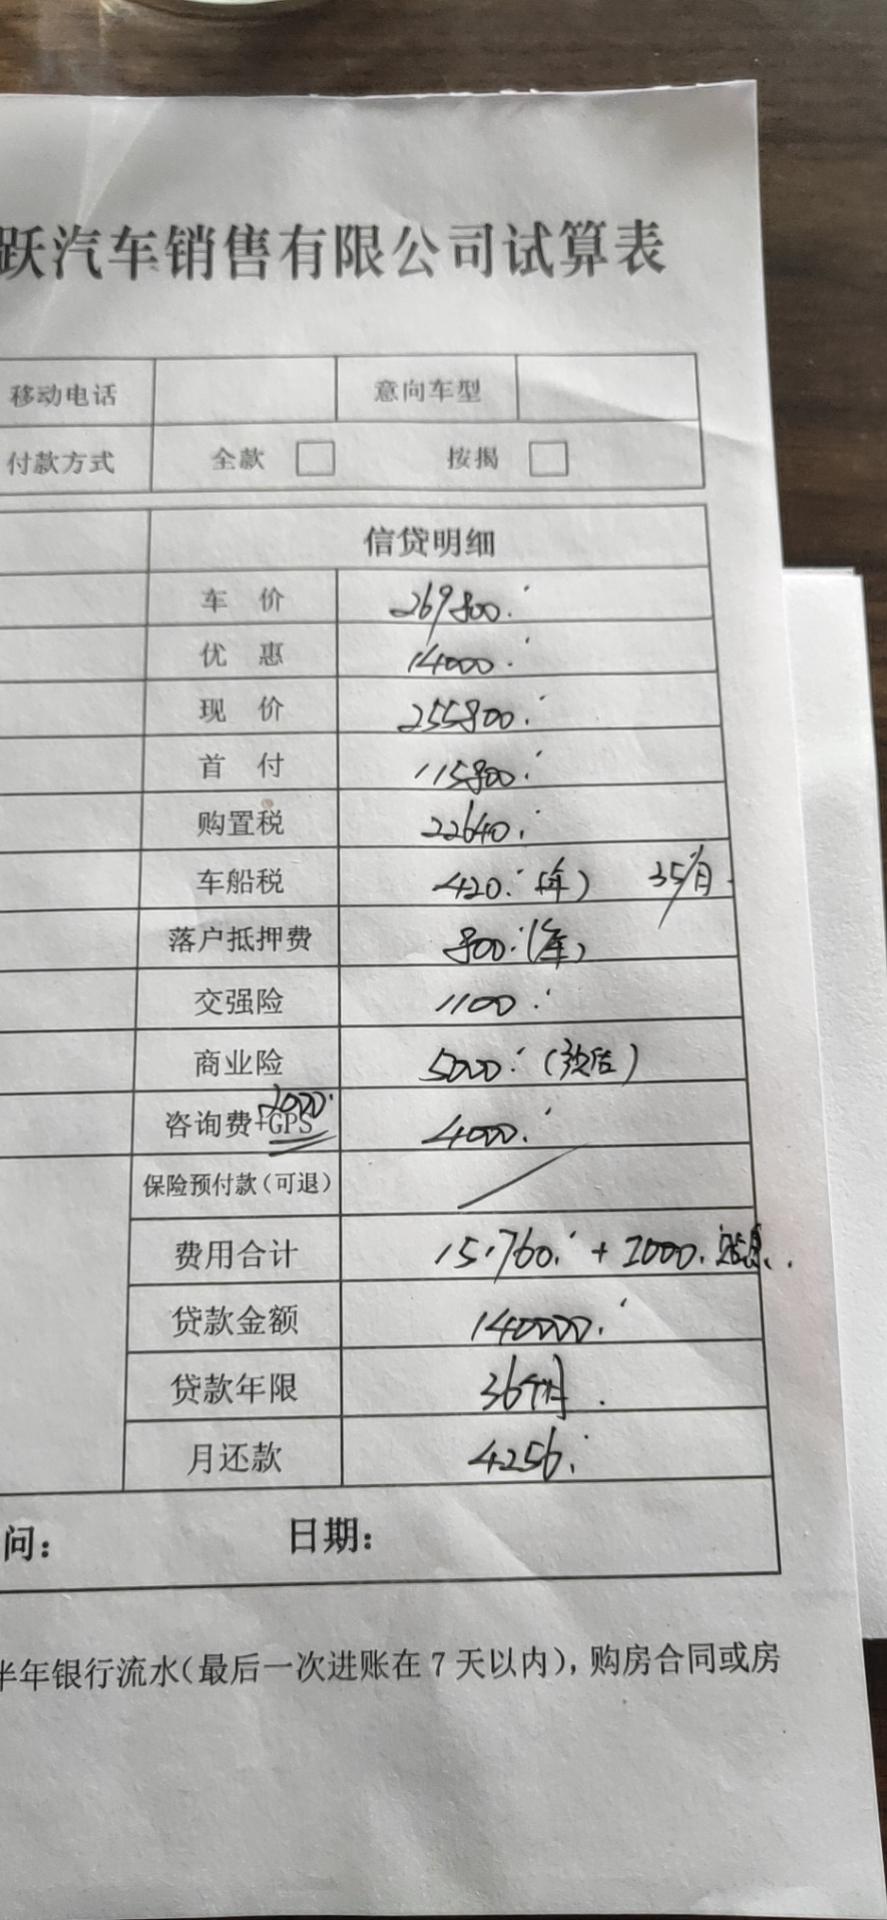 跃汽车销售有限公司试算表
移动电话 意向车型
付款方式 全款 按揭
信贷明细
车 价 269800.
优 惠 14000.
现 价 255800.
首 付 115800.
购置税 22640.
车船税 420.(年) 35/月.
落户抵押费 800.(年)
交强险 1100.
商业险 5000.(预估)
2000.
咨询费+GPS 4000.
保险预付款(可退)
费用合计 15.760. + 2000.
贷款金额 140000.
贷款年限 36个月.
月还款 4256.
问: 日期:
半年银行流水(最后一次进账在 7 天以内),购房合同或房